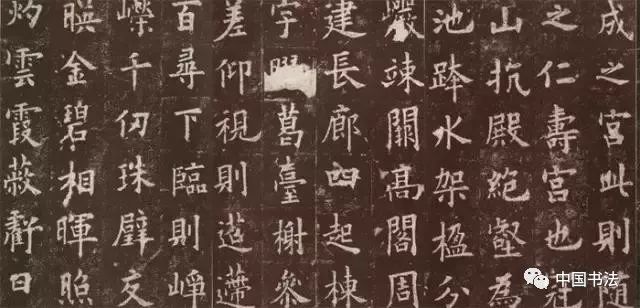 成之宮此則隨
之仁壽宮也冠
山抗殿絕壑為
池跨水架楹分
巖竦闕高閣周
建長廊四起棟
宇葛臺榭參
差仰視則迢遰
百尋下臨則崢
嶸千仞珠璧交
暎金碧相暉照
灼雲霞蔽虧日
中国书法